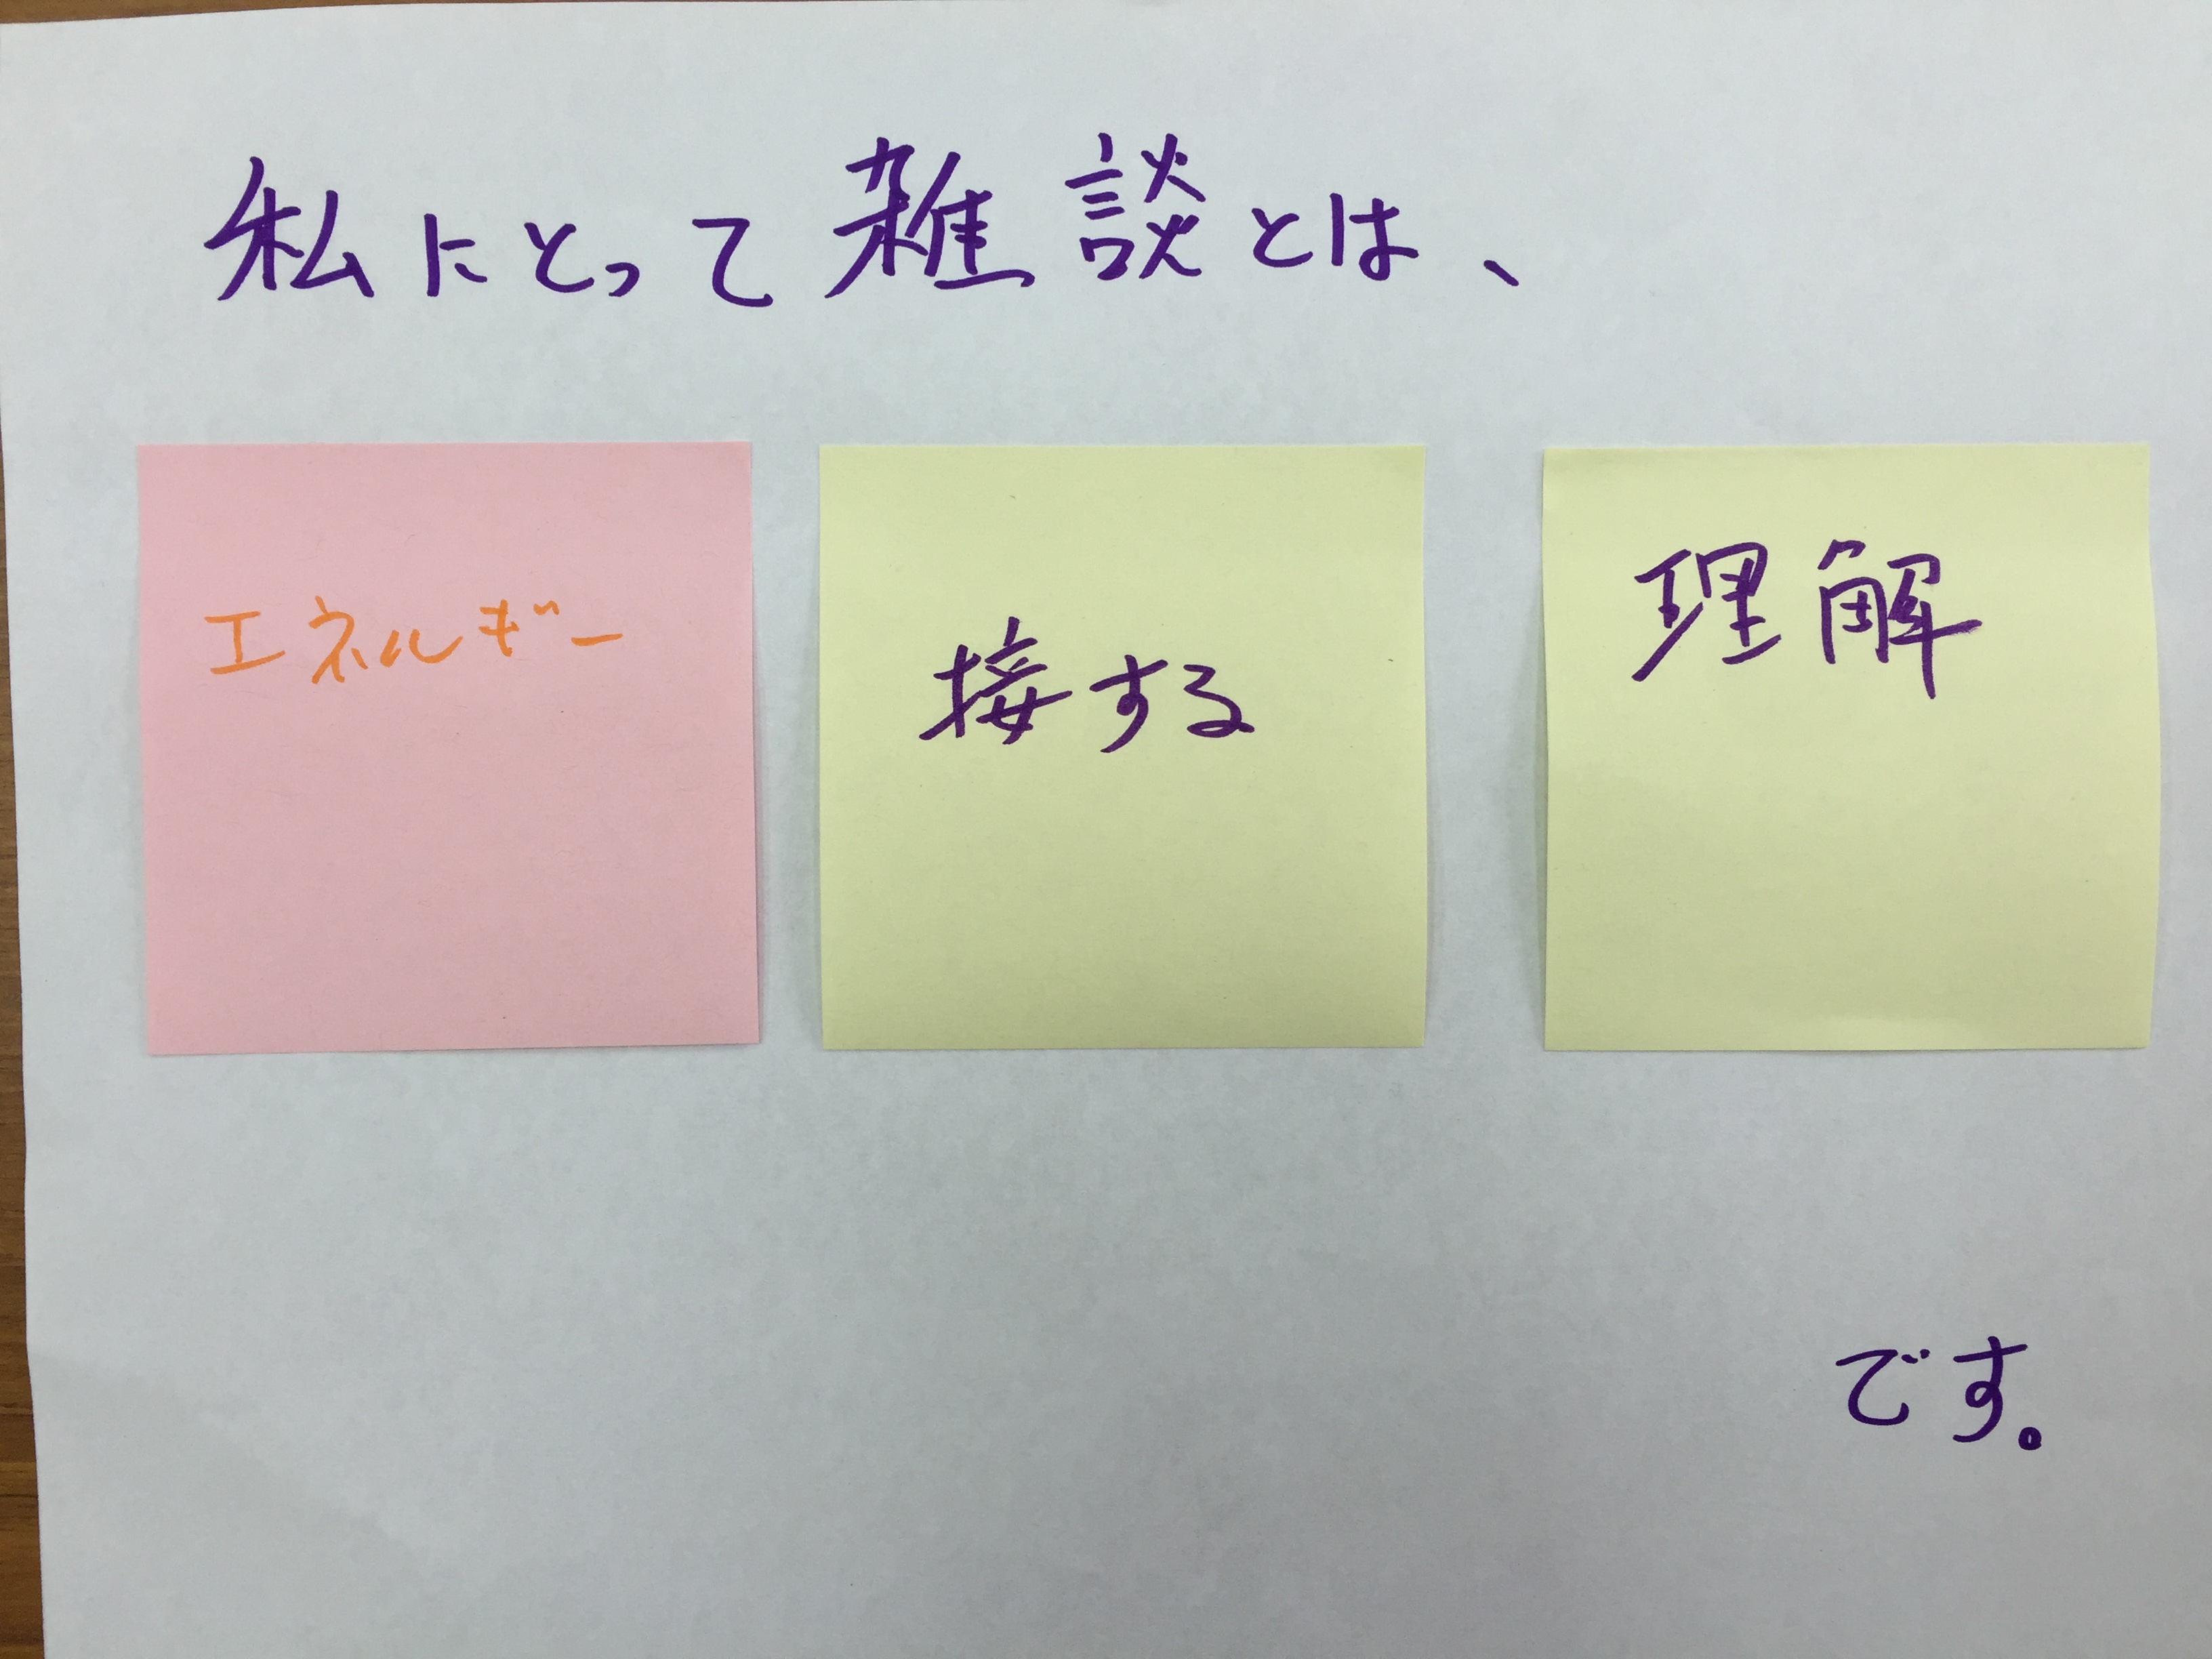 私にとって雑談とは、
エネルギー
接する
理解
です。